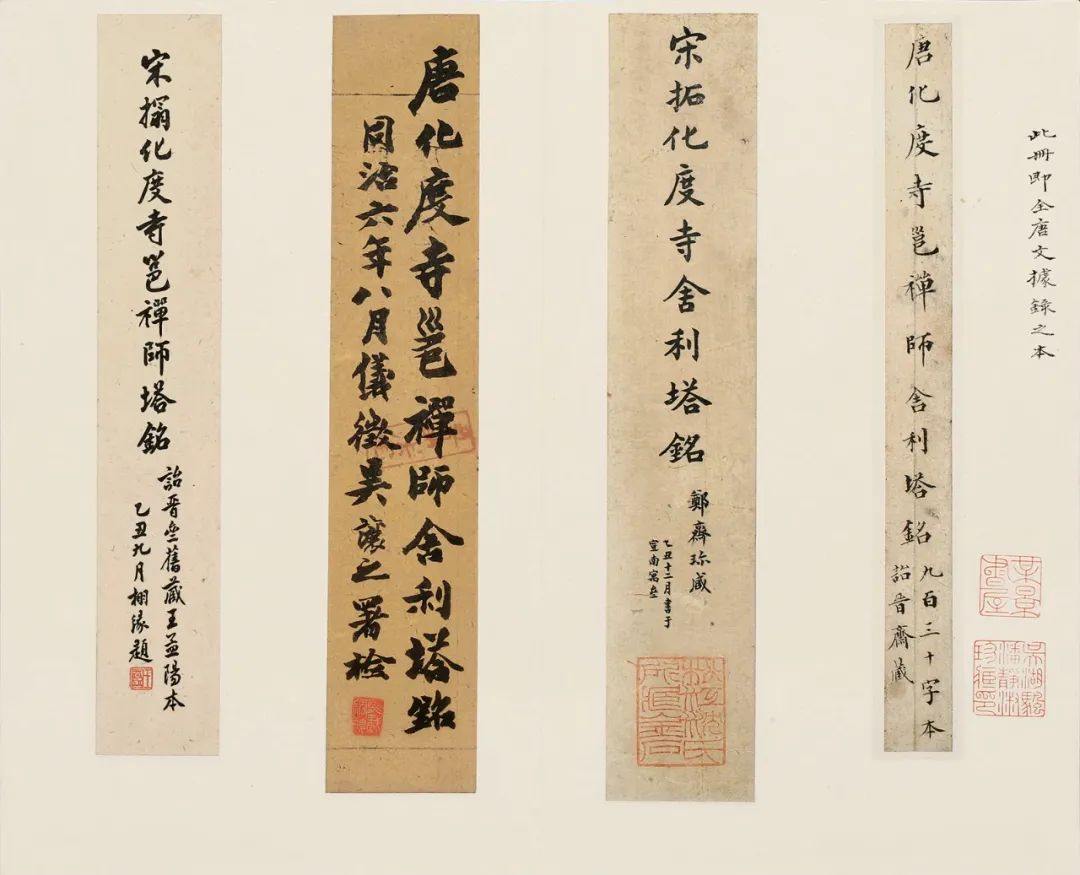 此冊即全唐文據錄之本
唐化度寺邕禪師舍利塔銘
九百三十字本
詒晉齋藏
宋拓化度寺舍利塔銘
鄭齋珎藏
乙丑十二月書于
宣南寓壘
唐化度寺邕禪師舍利塔銘
同治六年八月儀徵吳讓之署檢
宋搨化度寺邕禪師塔銘
詒晉齋舊藏王孟陽本
乙丑九月栩緣題